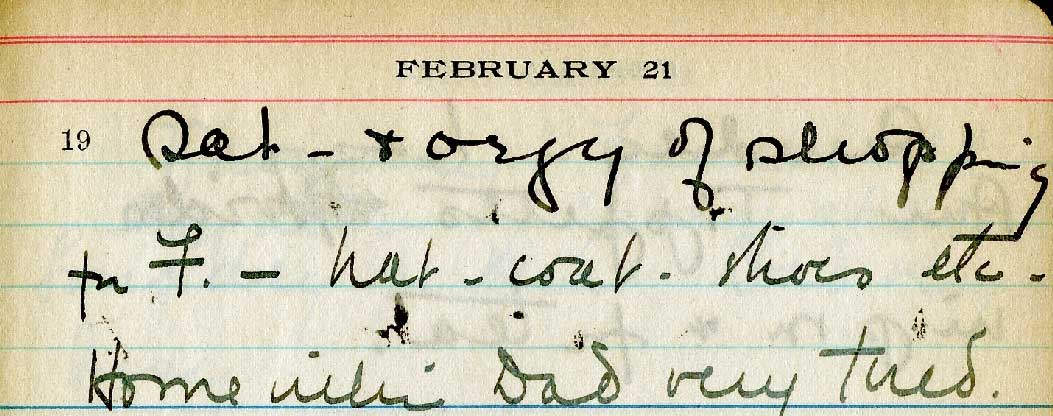 FEBRUARY 21
19 Sat - & orgy of shopping
for F. - hat - coat - shoes etc -
Home with Dad very tired.